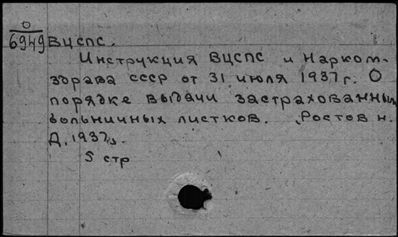 О
6949 ВЦСПС.
Инструкция ВЦСПС и Нарком-
здрава СССР от 31 июля 1937 г. О
порядке выдачи застрахованным
больничных листков. Ростов н.
Д, 1937г.
5 стр